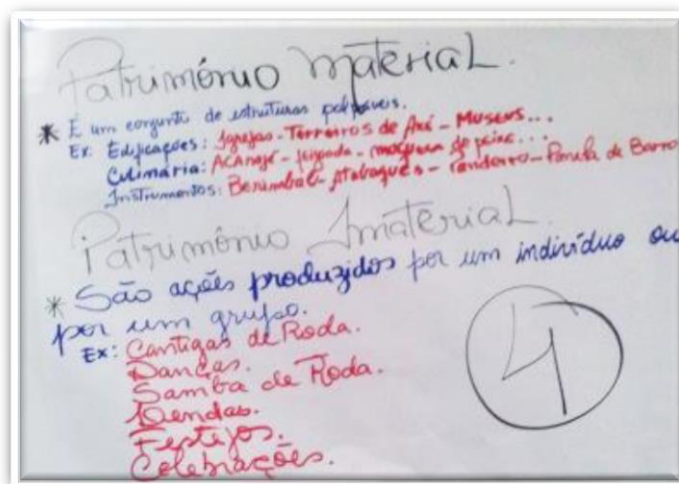 Patrimônio Material.
* É um conjunto de estruturas palpáveis.
Ex: Edificações: Igrejas - Terreiros de Axé - Museus...
Culinária: ACArajé - feijoada - moqueca de peixe...
Instrumentos: Berimbau - Atabaques - Pandeiro - Panela de Barro
Patrimônio Imaterial.
* São ações produzidos por um indivíduo ou
por um grupo.
Ex: Cantigas de Roda.
Danças.
Samba de Roda.
Lendas.
Festejos.
Celebrações.
4